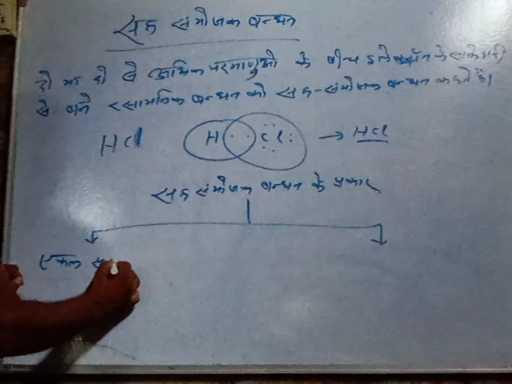 सह संयोजक बन्धन
दो या दो से अधिक परमाणुओ के बीच इलेक्ट्रॉन के साझेदारी
से बने रसायनिक बन्धन को सह-संयोजक बन्धन कहते है।
HCl H Cl → HCl
सह संयोजक बन्धन के प्रकार
एकल